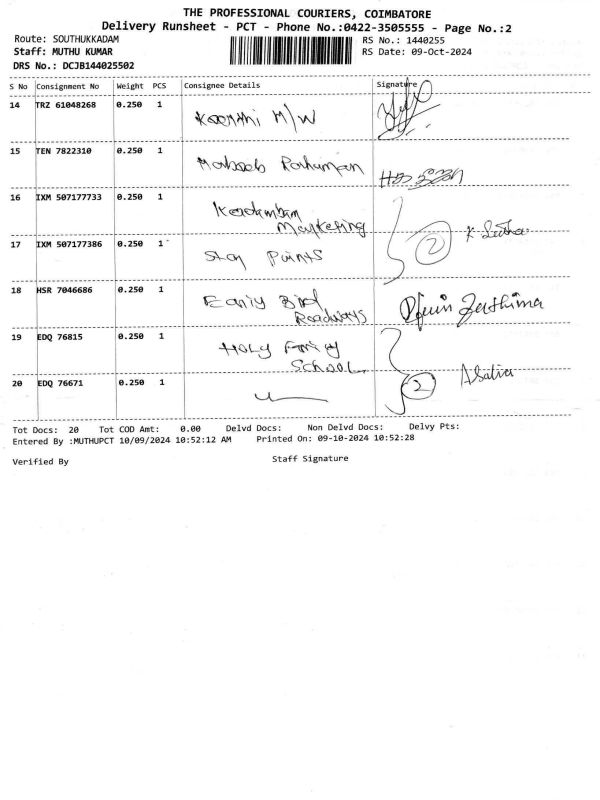 THE PROFESSIONAL COURIERS, COIMBATORE
Delivery Runsheet - PCT - Phone No.:0422-3505555 - Page No.:2
Route: SOUTHUKKADAM
RS No.: 1440255
Staff: MUTHU KUMAR
RS Date: 09-Oct-2024
DRS No.: DCJB144025502
S No Consignment No Weight PCS Consignee Details Signature
14 TRZ 61048268 0.250 1 M/W
15 TEN 7822310 0.250 1 Rahuman
16 IXM 507177733 0.250 1 Kadambam
Marketing
17 IXM 507177386 0.250 1 Star Paints
2
18 HSR 7046686 0.250 1 Early Bird
Roadways
19 EDQ 76815 0.250 1 Holy Family
School
20 EDQ 76671 0.250 1
2
Tot Docs: 20 Tot COD Amt: 0.00 Delvd Docs: Non Delvd Docs: Delvy Pts:
Entered By :MUTHUPCT 10/09/2024 10:52:12 AM Printed On: 09-10-2024 10:52:28
Verified By Staff Signature